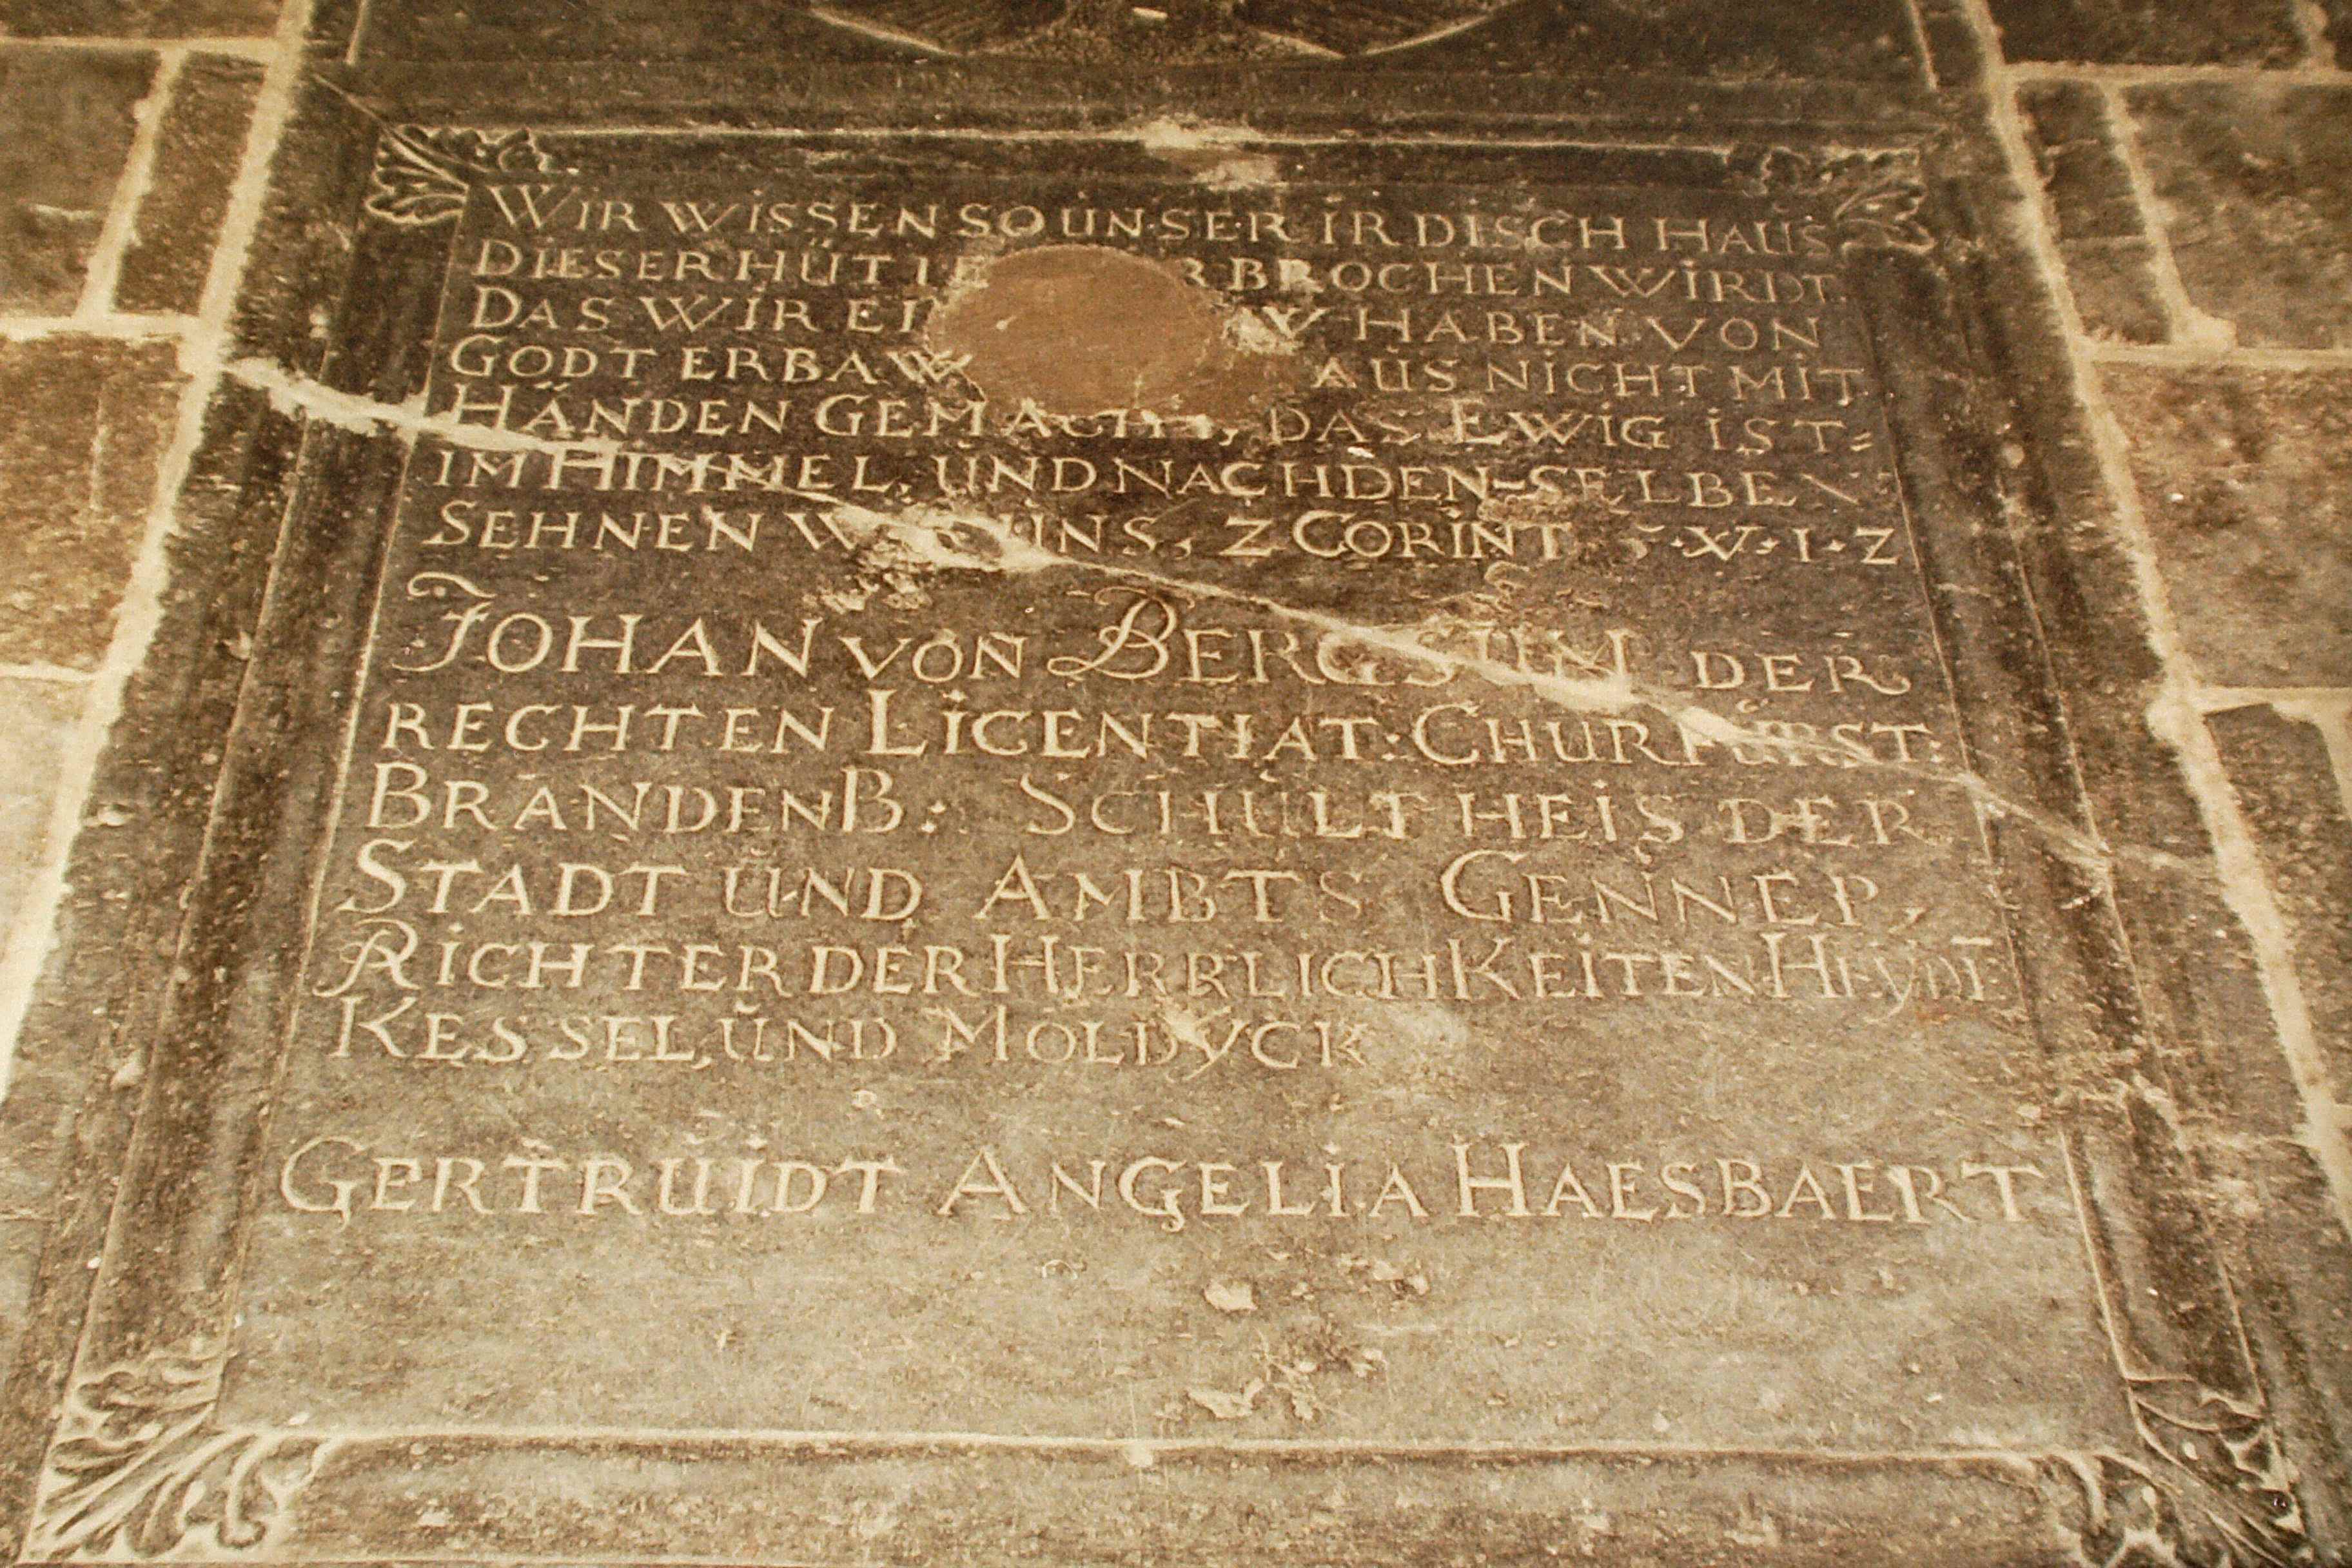 WIR WISSEN SO ŬNSER IRDISCH HAŬS
DIESER HÜTTE BROCHEN WIRDT.
DAS WIR HABEN VON
GODT NICHT MIT
HÄNDEN GEMACHT, DAS EWIG IST
IM HIMMEL, ŬND NACH DENSELBEN
SEHNEN ŬNS, 2 CORINT V. 1. 2
JOHAN VON DER
RECHTEN LICENTIAT: CHURFÜRST:
BRANDENB: SCHŬLTHEIS DER
STADT ŬND AMBTS GENNEP,
RICHTER DER HERRLICHKEITEN
KESSEL, ŬND MOLDYCK
GERTRŬIDT ANGELIA HAESBAERT